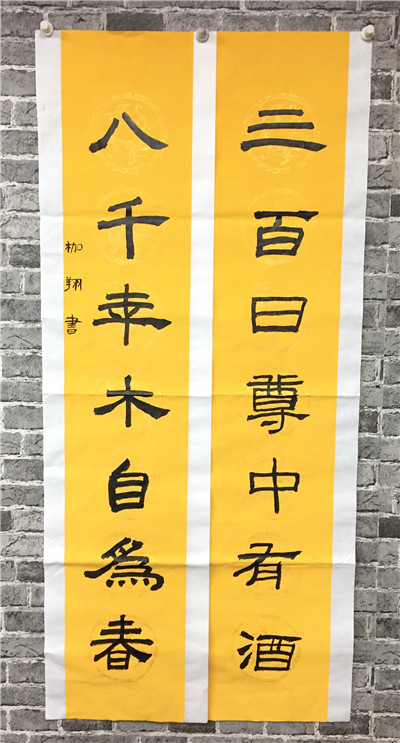 三百日尊中有酒
八千年木自爲春
枷翔書